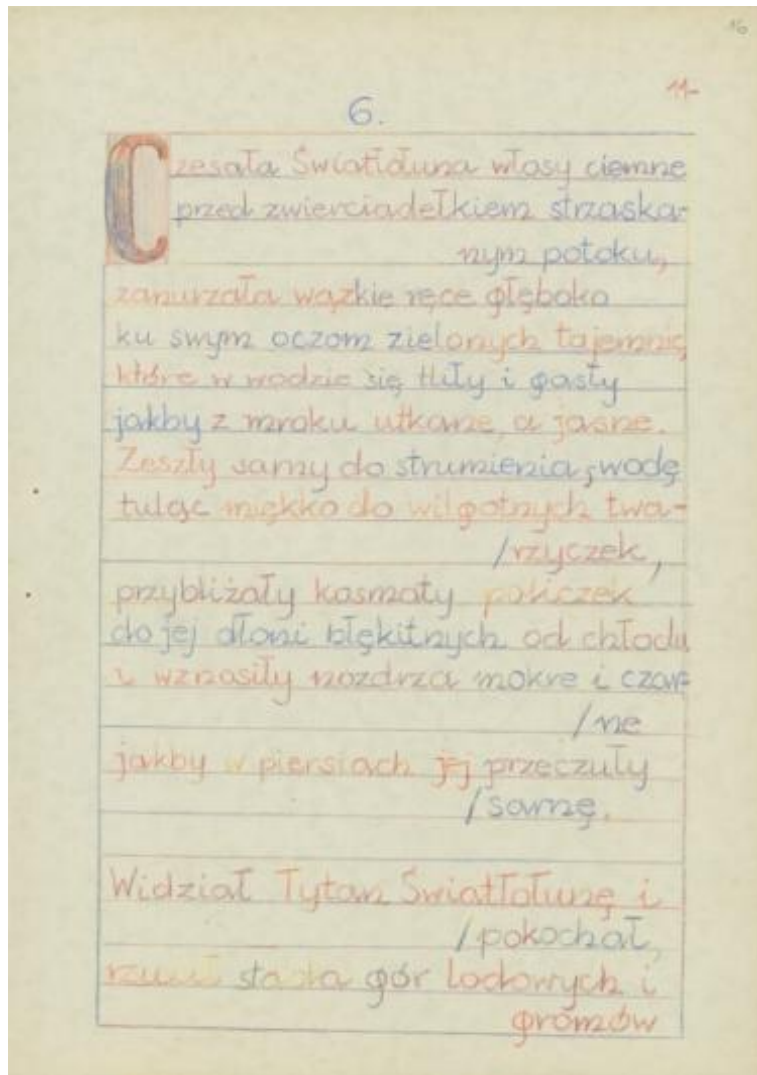 16
11-
6.
Czesała Światłołuna włosy ciemne
przed zwierciadełkiem strzaska-
nym potoku,
zanurzała wązkie ręce głęboko
ku swym oczom zielonych tajemnic,
które w wodzie się tliły i gasły
jakby z mroku utkane, a jasne.
Zeszły sarny do strumienia, wodę
tuląc miękko do wilgotnych twa-
/rzyczek,
przybliżały kosmaty policzek
do jej dłoni błękitnych od chłodu
i wznosiły nozdrza mokre i czar-
/ne
jakby w piersiach jej przeczuły
/sarnę.
Widział Tytan Światłołunę i
/pokochał,
rzucił stada gór lodowych i
gromów